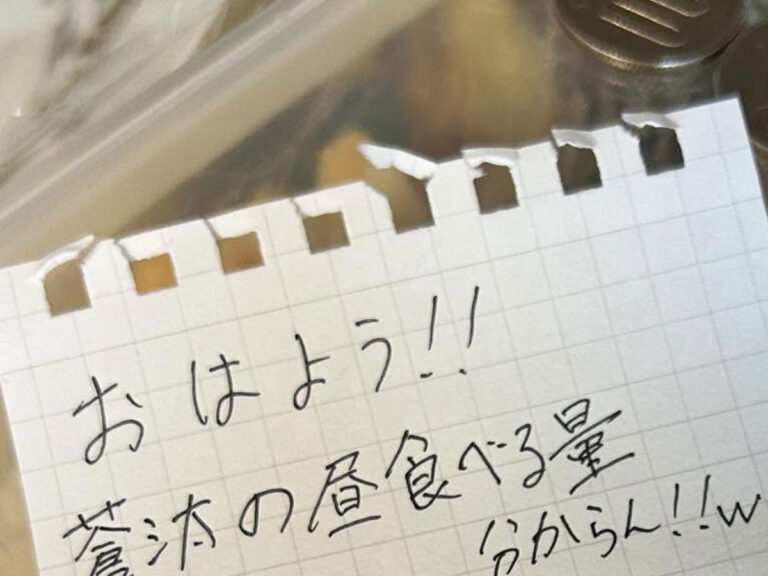 おはよう!!
蒼汰の昼食べる量
分からん!!w